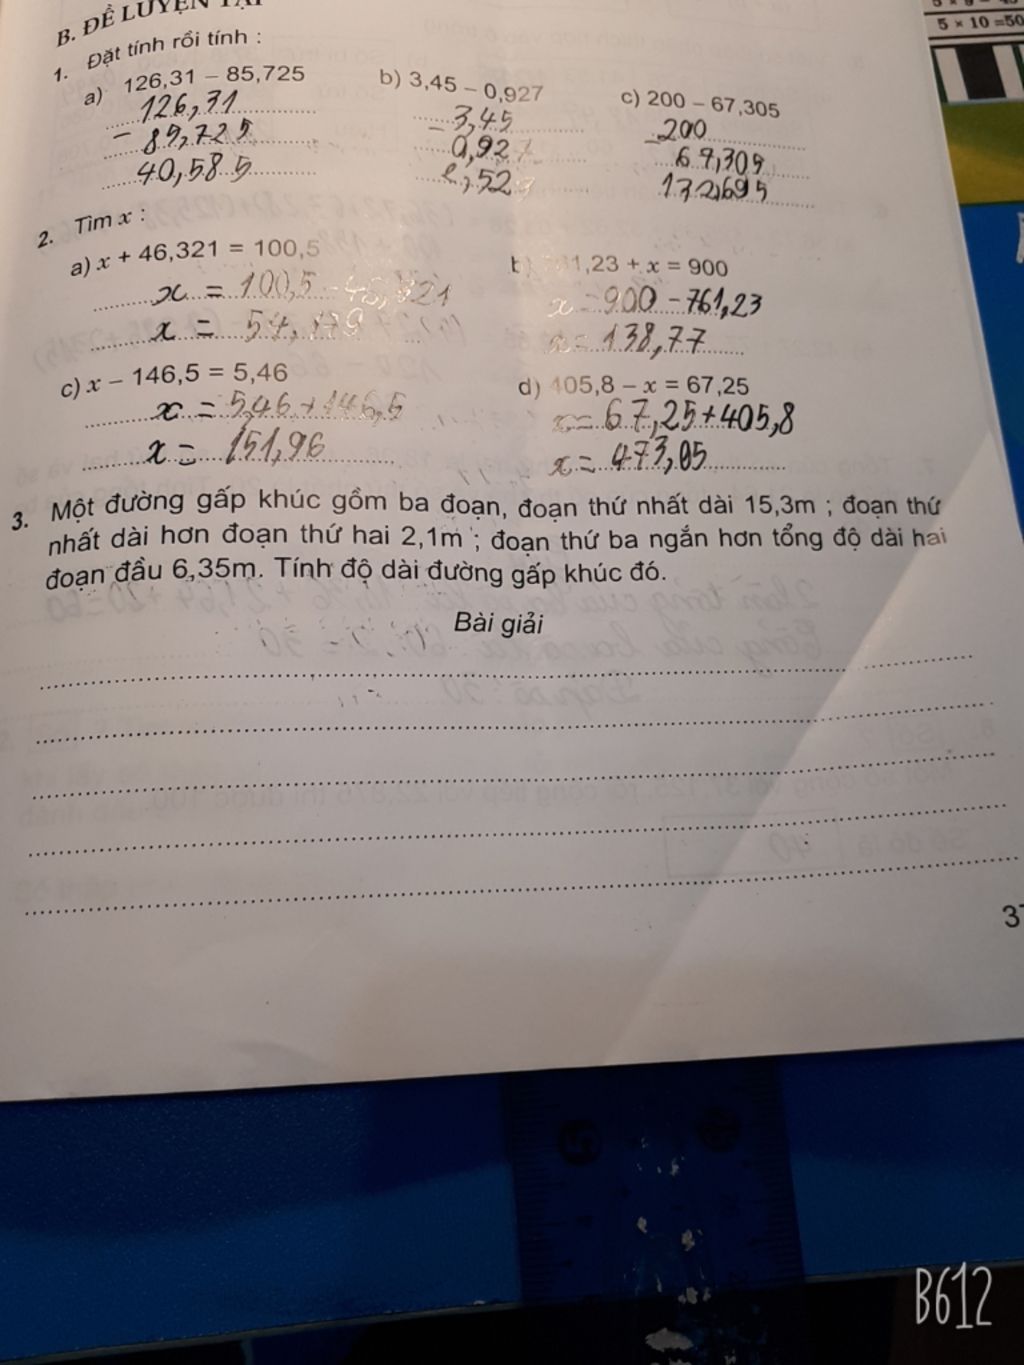 B. ĐỀ LUYỆN TẬP
5 × 10 =50
1. Đặt tính rồi tính :
a) 126,31 – 85,725
b) 3,45 – 0,927
c) 200 – 67,305
126,31
3,45
200
– 85,725
– 0,927
– 67,305
40,585
2,523
132,695
2. Tìm x :
a) x + 46,321 = 100,5
1,23 + x = 900
x = 100,5 – 46,321
x = 900 – 761,23
x = 54,179
x = 138,77
c) x – 146,5 = 5,46
d) 405,8 – x = 67,25
x = 5,46 + 146,5
x = 67,25 + 405,8
x = 151,96
x = 473,05
3. Một đường gấp khúc gồm ba đoạn, đoạn thứ nhất dài 15,3m ; đoạn thứ
nhất dài hơn đoạn thứ hai 2,1m ; đoạn thứ ba ngắn hơn tổng độ dài hai
đoạn đầu 6,35m. Tính độ dài đường gấp khúc đó.
Bài giải
B612